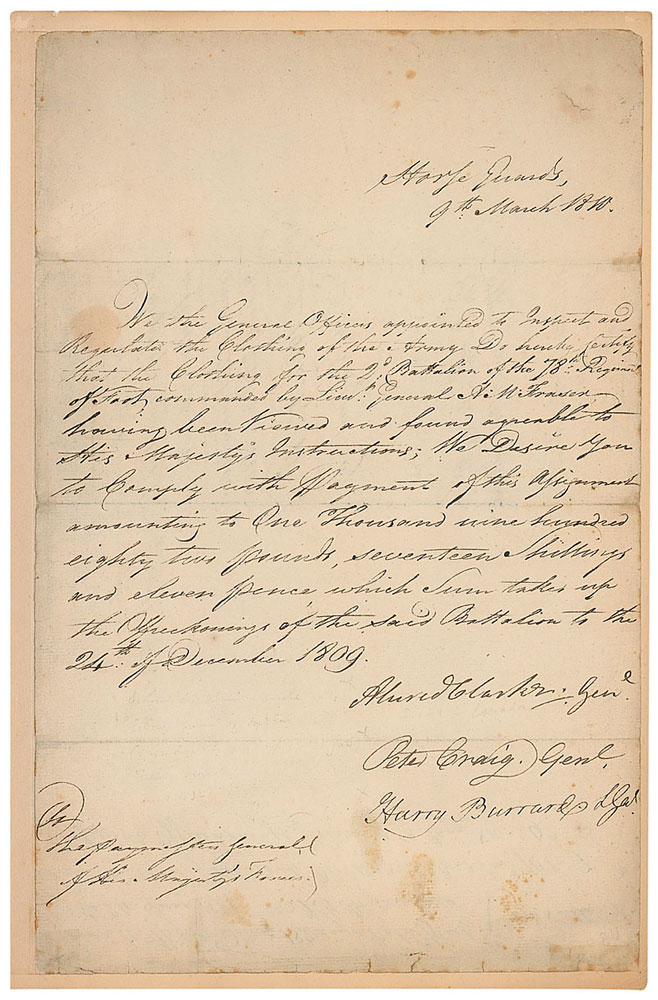 Horse Guards,
9th March 1810.
We the General Officers appointed to Inspect and
Regulate the Clothing of the Army Do hereby certify
that the Clothing for the 2d Battalion of the 78th Regiment
of Foot commanded by Lieut General A: M Fraser
having been Viewed and found agreable to
His Majesty's Instructions; We Desire You
to Comply with Payment of this Assignment
amounting to One Thousand nine hundred
eighty two pounds, seventeen Shillings
and eleven pence which Sum takes up
the Offreckonings of the said Battalion to the
24th of December 1809.
Alured Clarke. Genl
Peter Craig. Genl.
Harry Burrard LGal.
To
the Paymaster General
of His Majesty's Forces